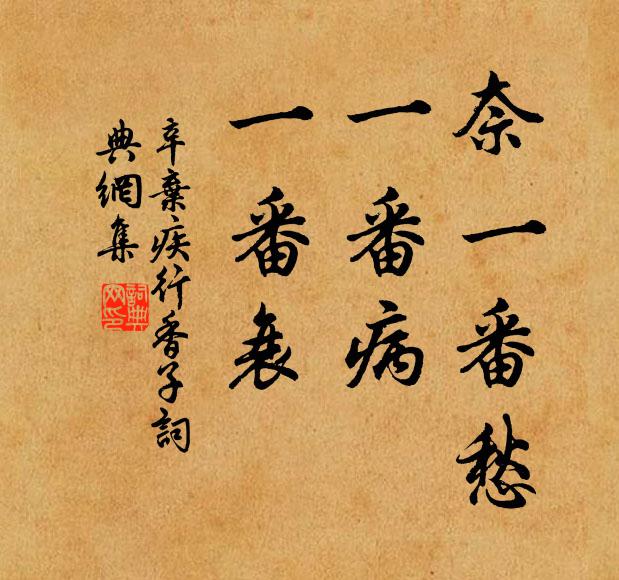 奈一番愁
一番病
一番衰
辛棄疾行香子詞
典網集
詞典網印